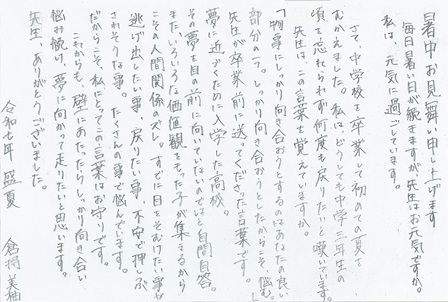 暑中お見舞い申し上げます
毎日暑い日が続きますが先生はお元気ですか。
私は、元気に過ごしています。
さて、中学校を卒業して初めての夏を
むかえました。私はどうしても中学三年生の
頃を忘れられず何度も戻りたいと嘆いています。
先生は、この言葉を覚えていますか。
「物事にしっかり向き合おうとするのはあなたの良い
部分の一つ。しっかり向き合おうとしたからこそ、悩む。」
先生が卒業前に送ってくださった言葉です。
夢に近づくために入学した高校。
その夢を目の前に向いていないのではと自問自答。
また、いろいろな価値観をもった子が集まるから
こその人間関係のズレ。すでに目をそむけたい事や
逃げ出したい事、戻りたい事、不安で押しつぶ
されそうな事。たくさんの事で悩んでいます。
だからこそ、私にとってこの言葉はお守りです。
これからも、壁にあたったらしっかり向き合い
悩み続け、夢に向かって走りたいと思います。
先生、ありがとうございました。
令和七年 盛夏
倉持 美柚